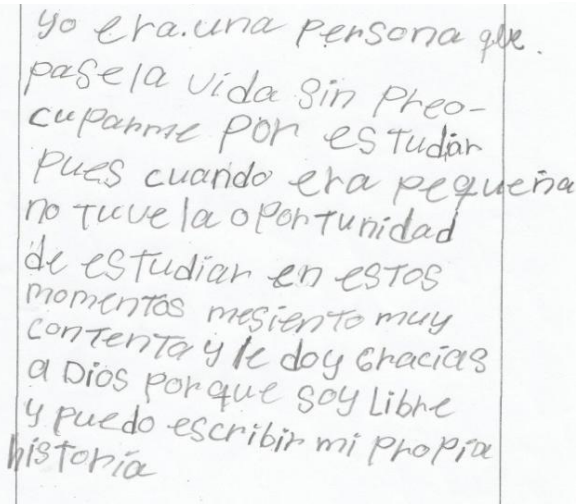 yo era.una persona que.
pase la vida sin preo-
cuparme por estudar
pues cuando era pequeña
no tuve la oportunidad
de estudiar en estos
momentos mesiento muy
contenta y le doy gracias
a Dios porque soy Libre
y puedo escribir mi propia
historia